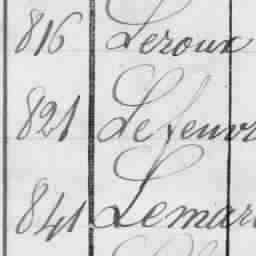 816 Leroux
821 Lefeuvr
841 Lemar